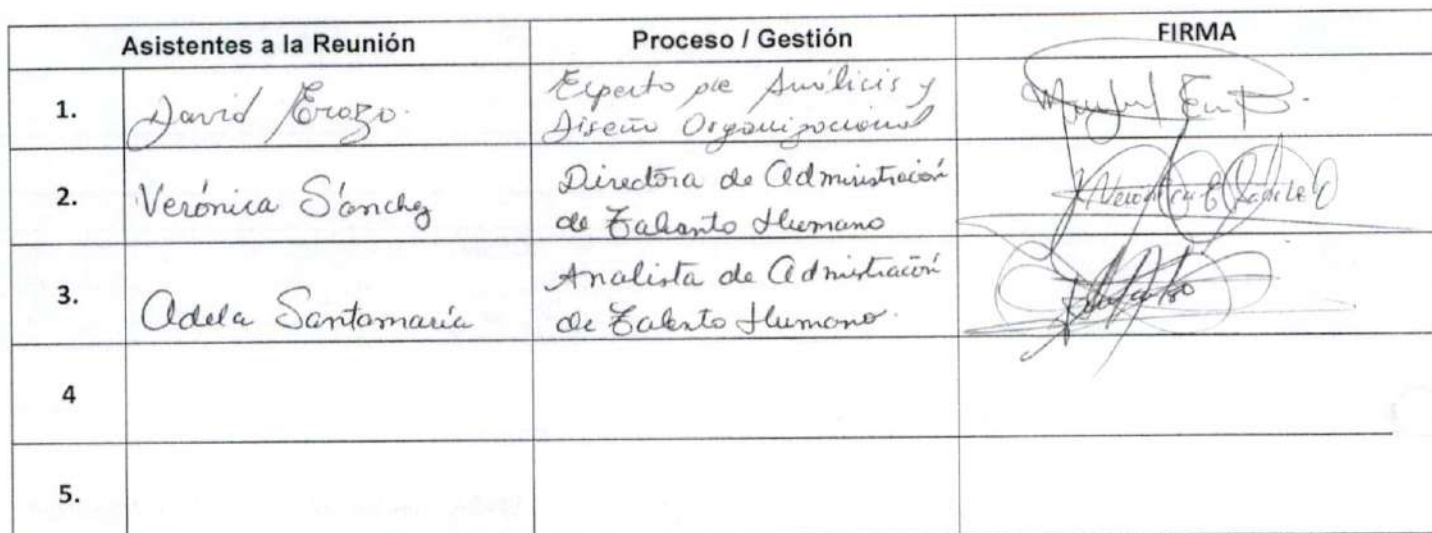 Asistentes a la Reunión Proceso / Gestión FIRMA
1. David Erazo. Experto de Análisis y
Diseño Organizacional
2. Verónica Sánchez Directora de Administración
de Talento Humano
3. Adela Santamaría Analista de Admistración
de Talento Humano.
4
5.